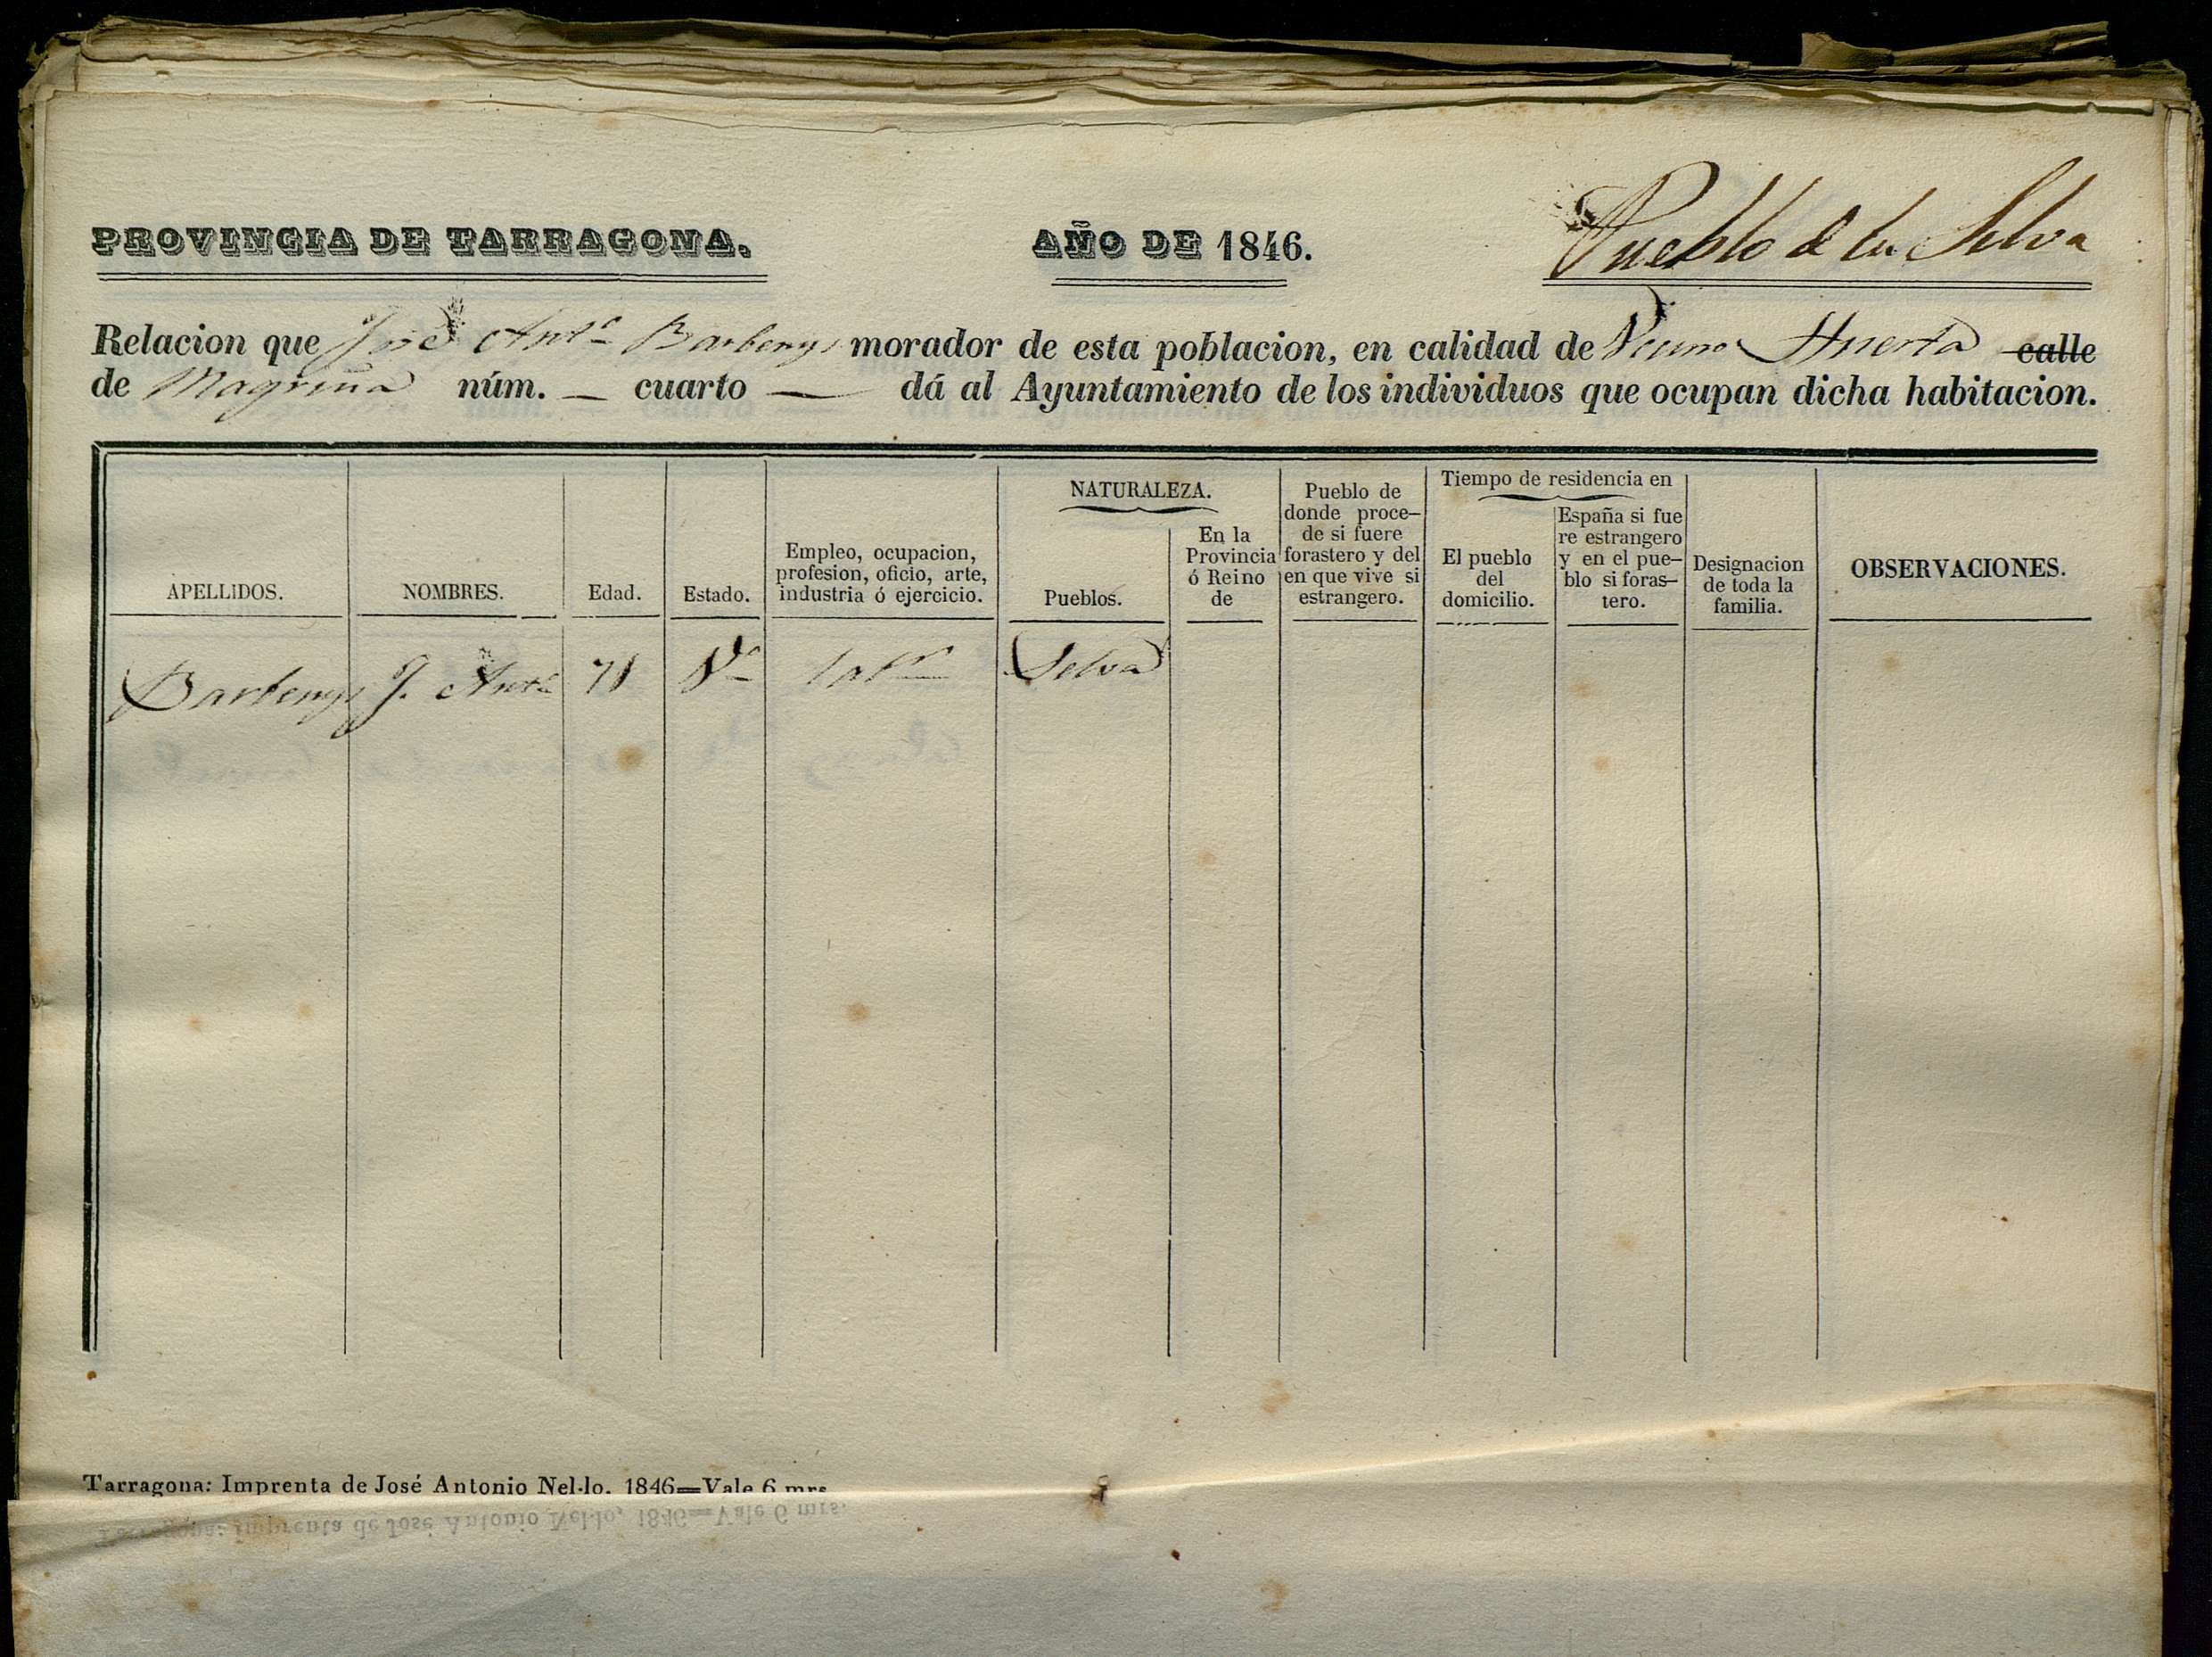 PROVINCIA DE TARRAGONA. AÑO DE 1846. Pueblo de la Selva
Relacion que José Antº Barbenys morador de esta poblacion, en calidad de Vecino Huerta calle
de Magriña núm. — cuarto — dá al Ayuntamiento de los individuos que ocupan dicha habitacion.
APELLIDOS.
NOMBRES.
Edad.
Estado.
Empleo, ocupacion,
profesion, oficio, arte,
industria ó ejercicio.
NATURALEZA.
Pueblos.
En la
Provincia
ó Reino
de
Pueblo de
donde proce-
de si fuere
forastero y del
en que vive si
estrangero.
Tiempo de residencia en
El pueblo
del
domicilio.
España si fue
re estrangero
y en el pue-
blo si foras-
tero.
Designacion
de toda la
familia.
OBSERVACIONES.
Barbenys J. Antº 71 Vº labr Selva
Tarragona: Imprenta de José Antonio Nel-lo. 1846=Vale 6 mrs.